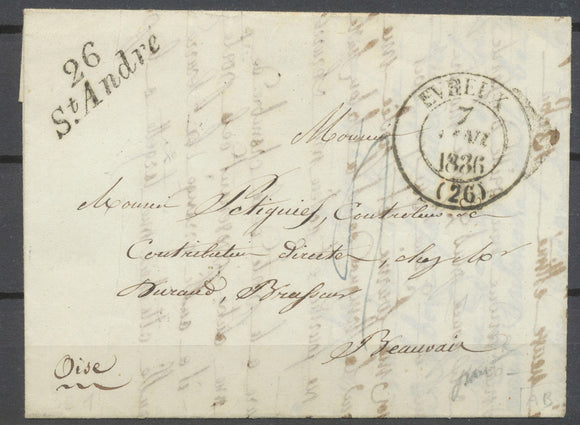 26
St Andre
EVREUX
7
1836
(26)
Monsieur
Monsieur Potiquier, Controleur de
Contributions directes, chez Mr
Durand, Brasseur
Beauvais
Oise
AB